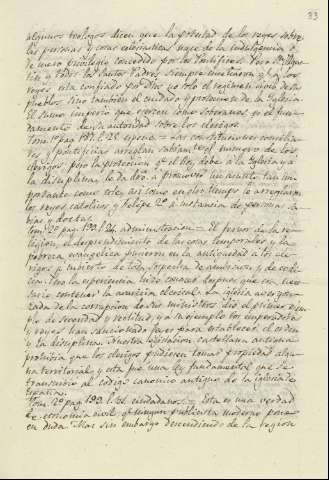 33
algunos teologos dicen que la potestad de los reyes sobre
las personas y cosas eclesiasticas nace de la indulgencia o
de nuevo privilegio concedido por los Pontifices. Pero S.
y todos los Santos Padres siempre enseñaron q. a los
reyes está confiado por Dios no solo el regimen de sus
pueblos sino tambien el cuidado y proteccion de la Iglesia.
El sumo imperio que ejercen como soberanos es el funda-
mento de su autoridad sobre los clerigos.
tom. 1º pag. Las constituciones concilia-
res y pontificias arreglan sabiam.te el numero de los
clerigos; pero la proteccion q.e el Rey debe a la Iglesia y a
la disciplina le da dro. a promover un asunto tan im-
portante como este, asi como en otro tiempo lo arreglaron
los reyes catolicos y Felipe 2º a instancia de personas sa-
bias y doctas.
tom. 2º pag. 190 l. 24 administracion — El fervor de la re-
ligion, el desprendimiento de las cosas temporales y la
pobreza evangelica pusieron en la antiguedad a los cle-
rigos a cubierto de toda sospecha de ambicion y de codi-
cia. Pero la experiencia hizo conocer despues que era nece-
sario contener la avaricia de estos. La iglesia avergon-
zada de la corrupcion de sus ministros dió el primer exem-
plo de severidad y rectitud, y a su ejemplo los emperadores
y reyes han sancionado leyes para establecer el orden
y la disciplina. Nuestra legislacion castellana antigua
prohivia que los clerigos pudiesen tomar propiedad algu-
na territorial, y esta fue una ley fundamental que se
transmitió al codigo canonico antiguo de la iglesia de
España.
tom. 2º pag. 193 l. 26 ciudadanos — Esta es una verdad
de economia civil q.e ningun publicista moderno pone
en duda. Mas sin embargo descendiendo de la region